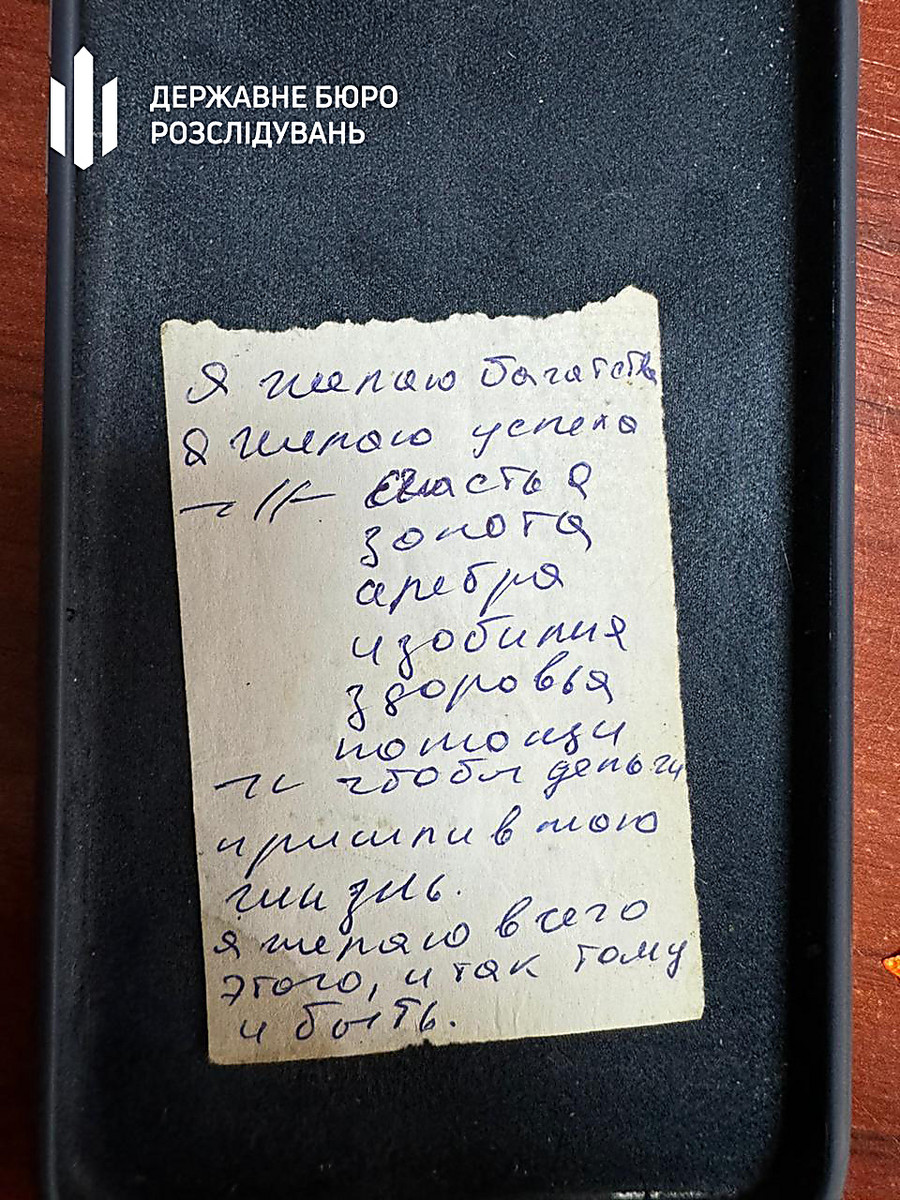 ДЕРЖАВНЕ БЮРО
РОЗСЛІДУВАНЬ
Я желаю багатства
Я желаю успеха
-//- счастья
золота
серебра
изобилия
здоровья
помощи
-//- чтобы деньги
пришли в мою
жизнь.
я желаю всего
этого, и так тому
и быть.